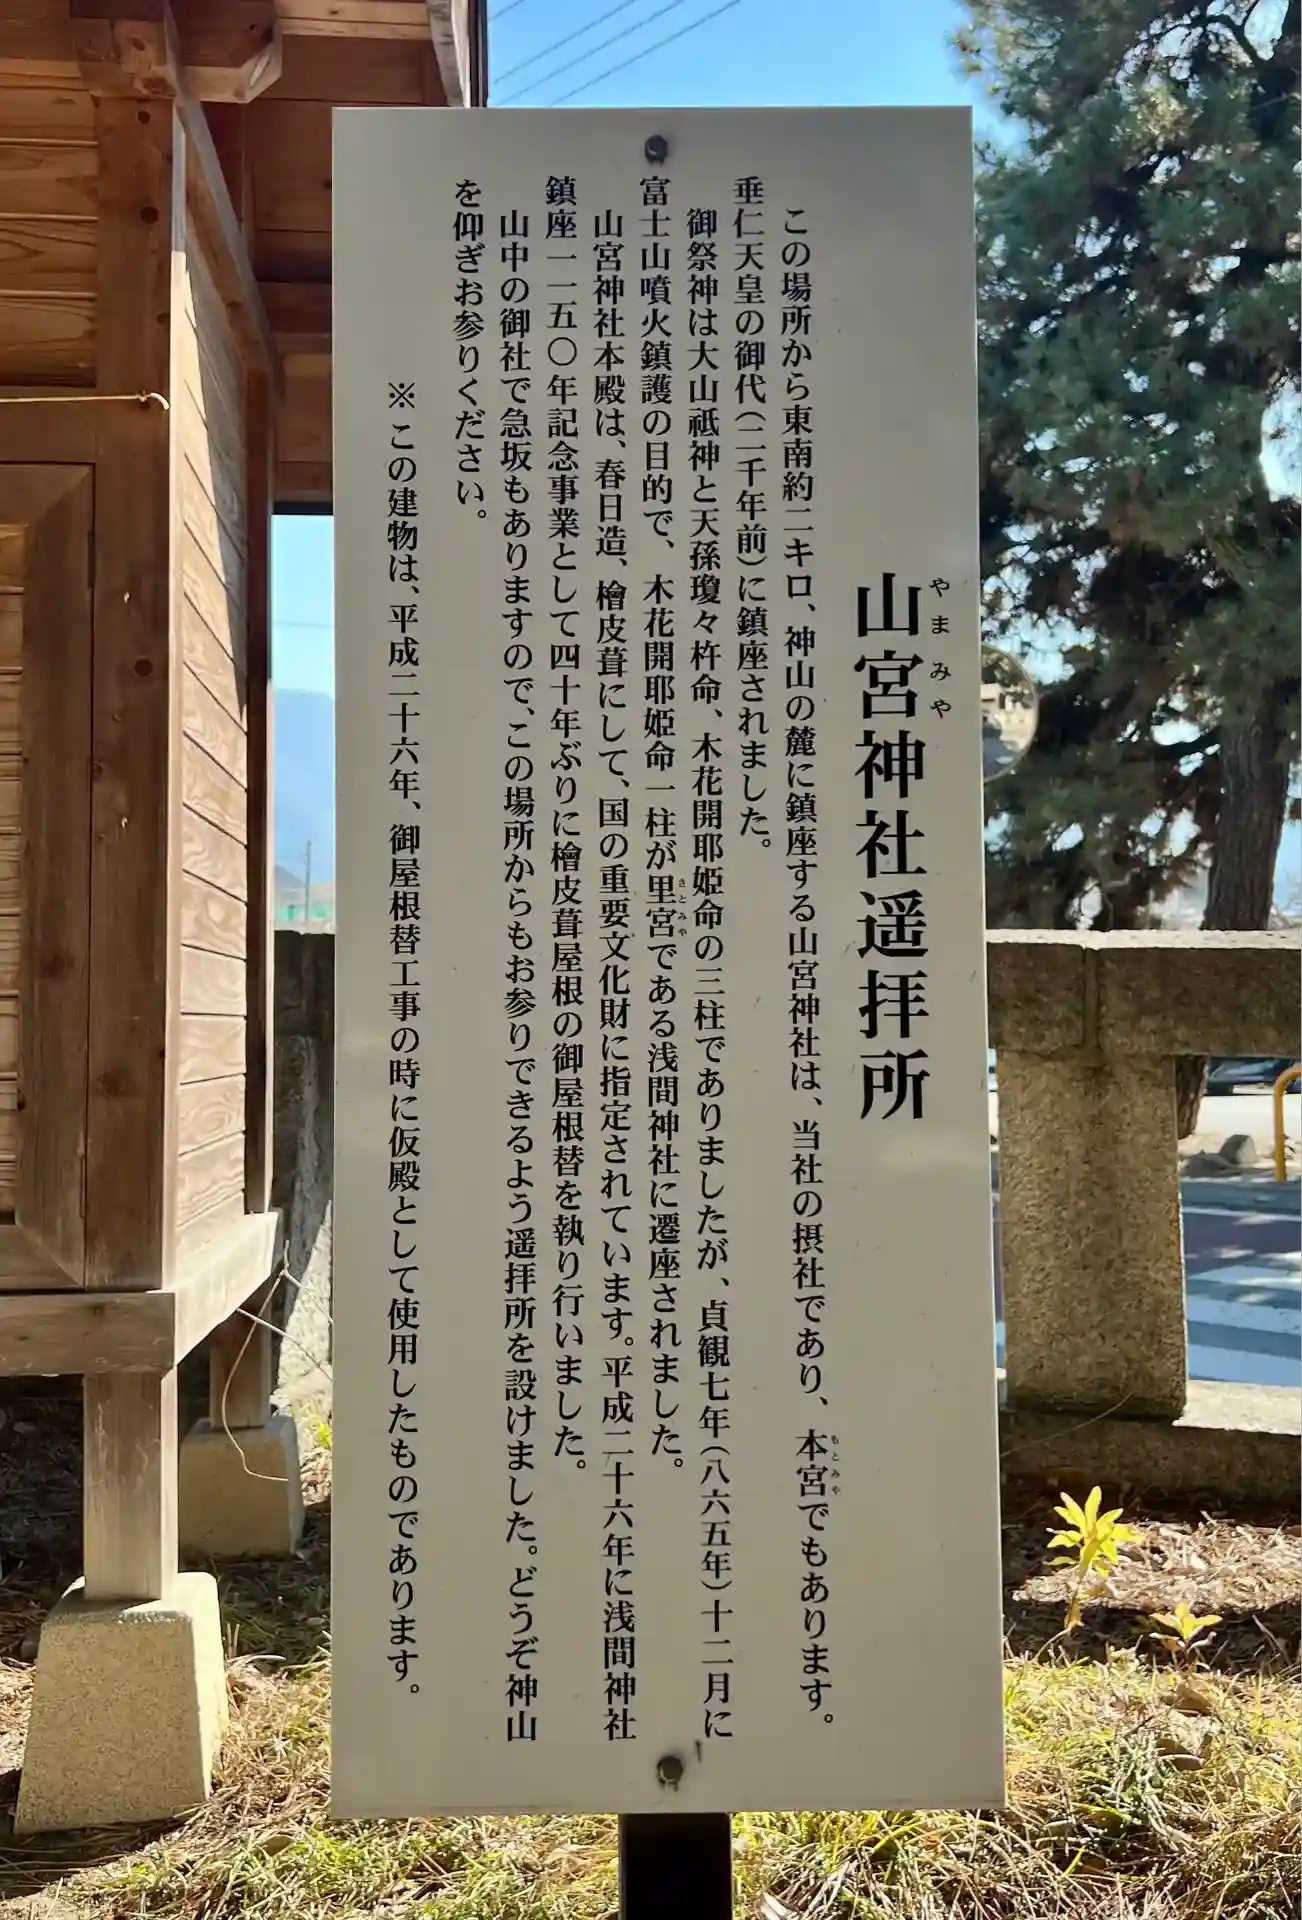 やまみや
山宮神社遥拝所
この場所から東南約二キロ、神山の麓に鎮座する山宮神社は、当社の摂社であり、本宮でもあります。
もとみや
垂仁天皇の御代（二千年前）に鎮座されました。
御祭神は大山祗神と天孫瓊々杵命、木花開耶姫命の三柱でありましたが、貞観七年（八六五年）十二月に
富士山噴火鎮護の目的で、木花開耶姫命一柱が里宮である浅間神社に遷座されました。
さとみや
山宮神社本殿は、春日造、檜皮葺にして、国の重要文化財に指定されています。平成二十六年に浅間神社
鎮座一一五〇年記念事業として四十年ぶりに檜皮葺屋根の御屋根替を執り行いました。
山中の御社で急坂もありますので、この場所からもお参りできるよう遥拝所を設けました。どうぞ神山
を仰ぎお参りください。
※この建物は、平成二十六年、御屋根替工事の時に仮殿として使用したものであります。